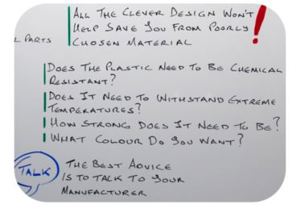 All The Clever Design Won't
Help Save You From Poorly
Chosen Material
l Parts
Does The Plastic Need To Be Chemical
Resistant?
Does It Need To Withstand Extreme
Temperatures?
How Strong Does It Need To Be?
What Colour Do You Want?
Talk
The Best Advice
Is To Talk To Your
Manufacturer